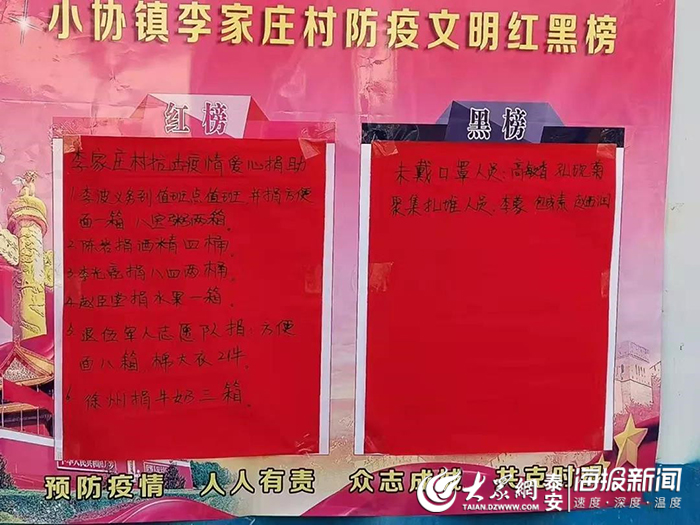 小协镇李家庄村防疫文明红黑榜
红榜
李家庄村抗击疫情爱心捐助
1.李波义务到值班点值班,并捐方便
面一箱 八宝粥两箱.
2.陈岩捐酒精四桶
3.李光 捐八四两桶.
4.赵 堂捐水果一箱.
5.退伍军人志愿队捐:方便
面八箱,棉大衣2件.
6.徐州捐牛奶三箱.
黑榜
未戴口罩人员:高敏
聚集扎堆人员:李
预防疫情 人人有责 众志成城 共克时艰
大众网 泰安 海报新闻
TAIAN.DZWWW.COM 速度·深度·温度